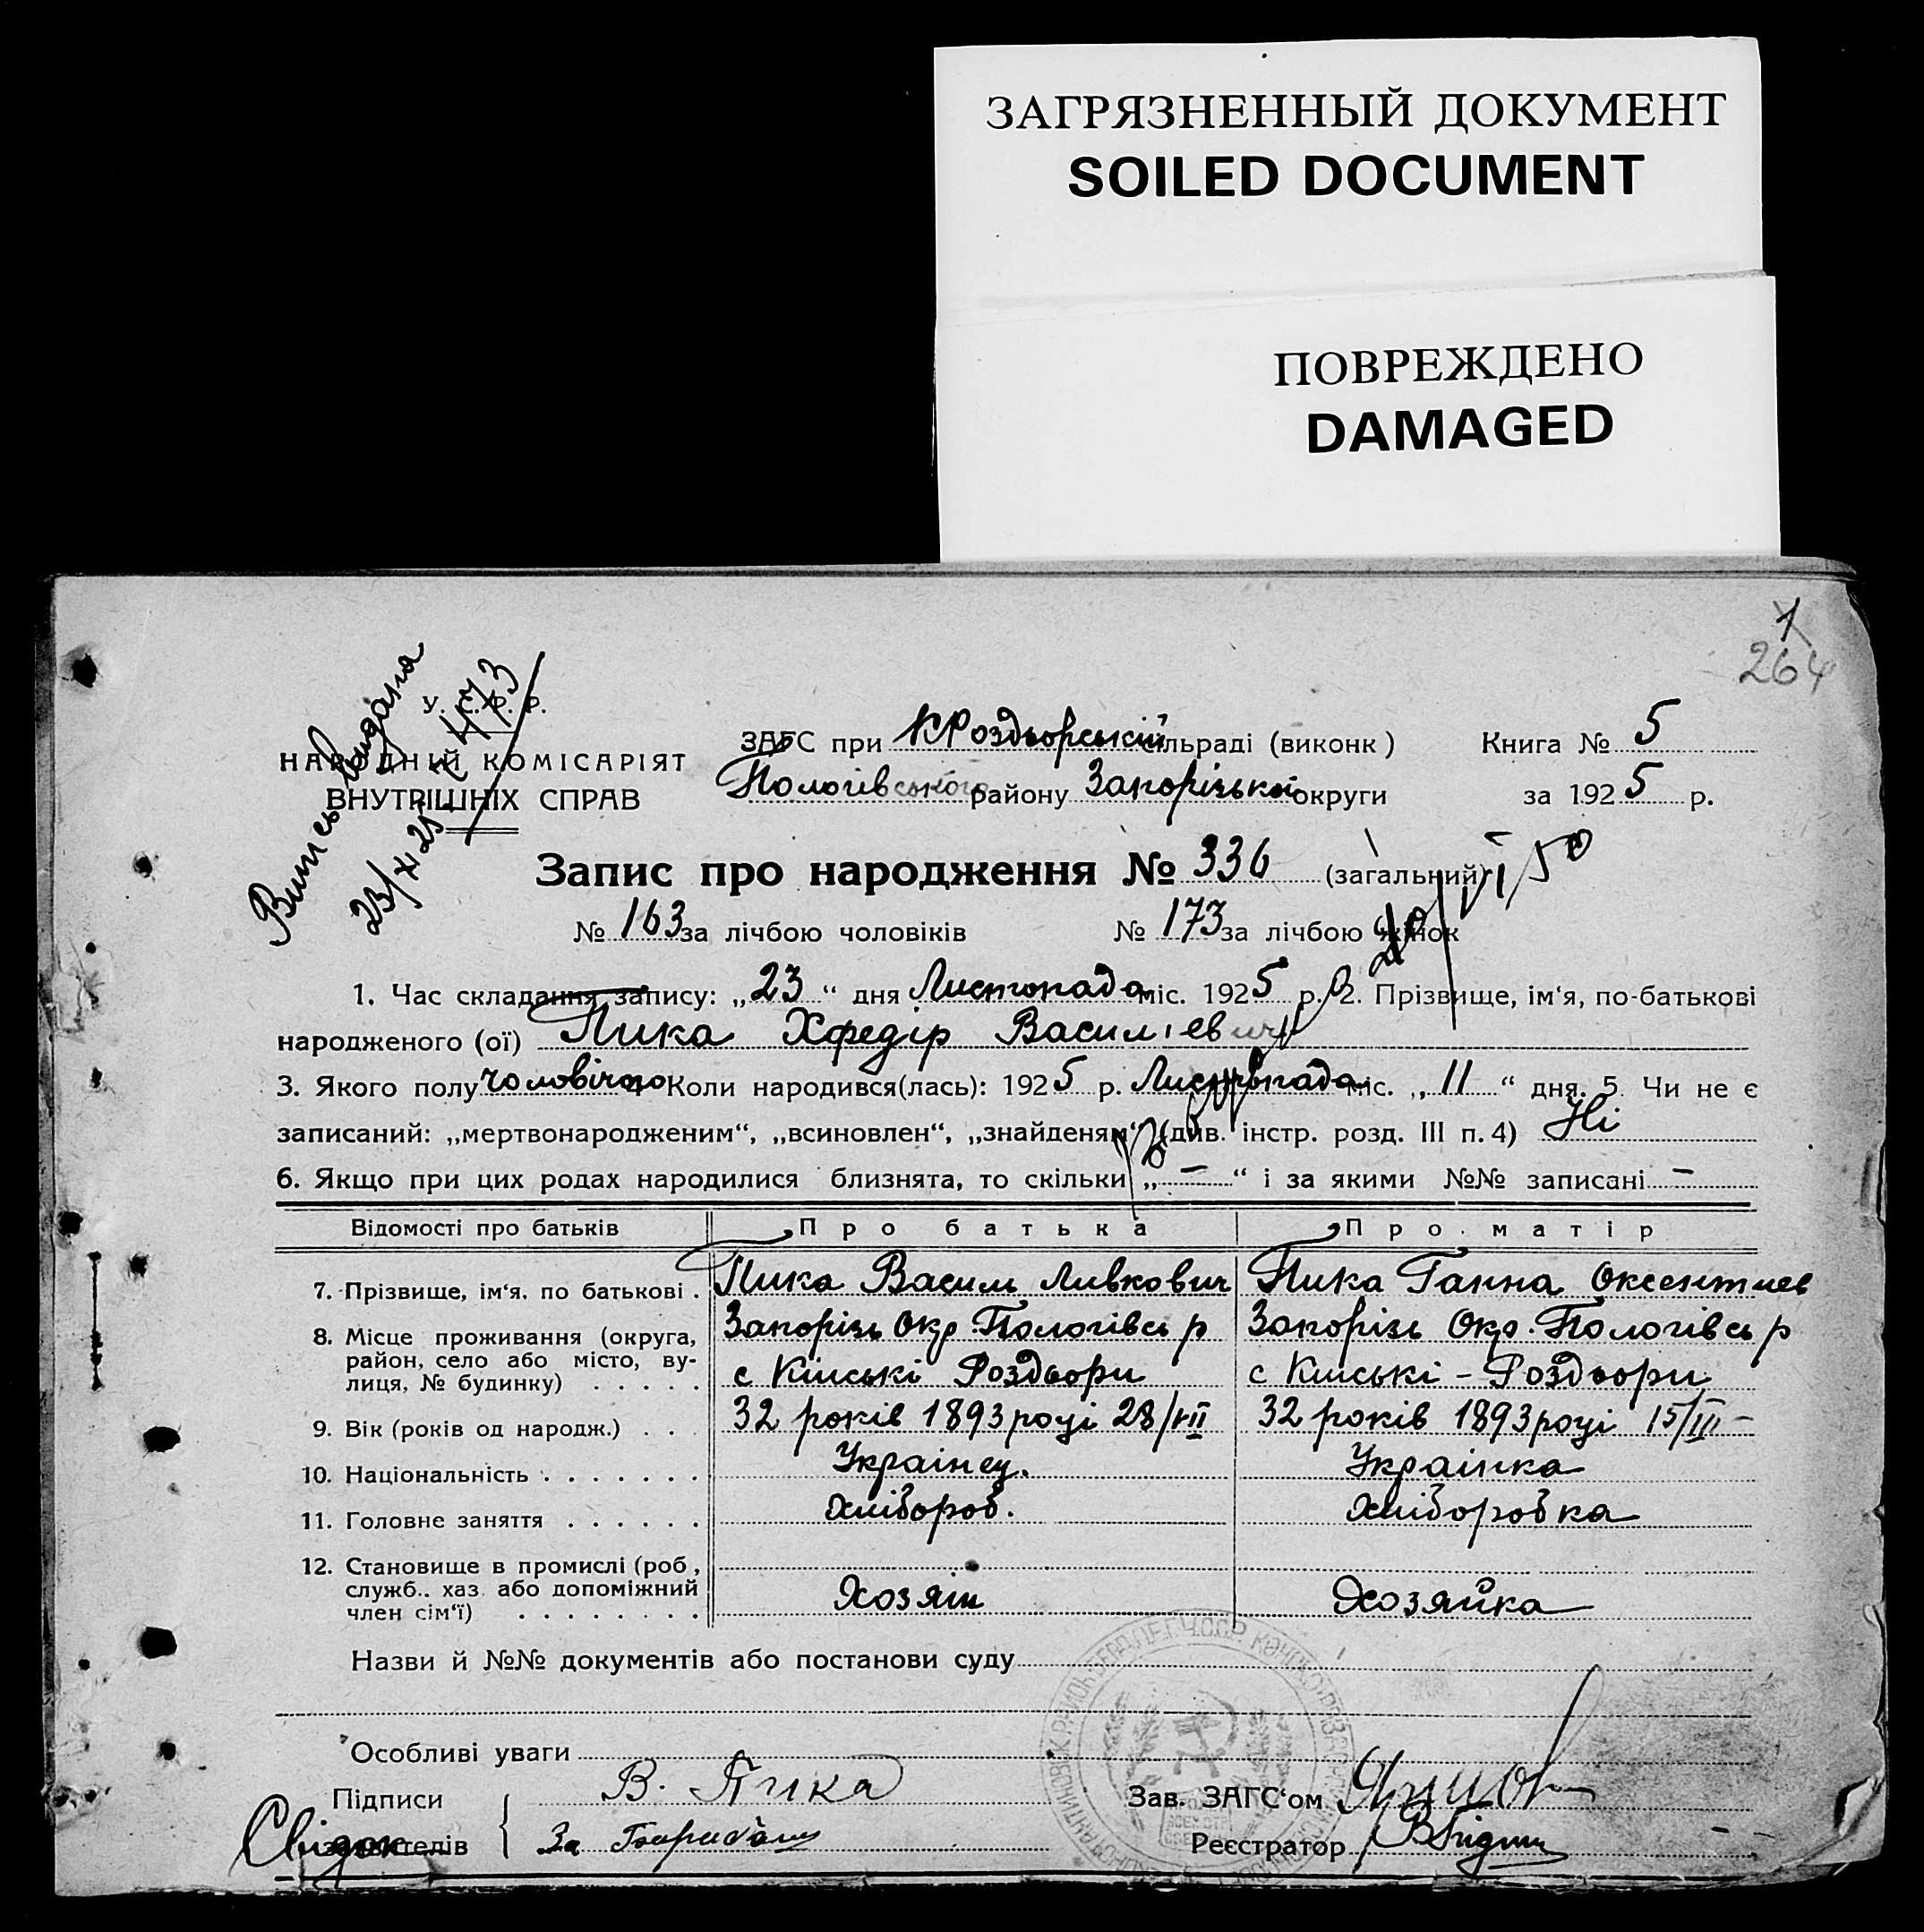 ЗАГРЯЗНЕННЫЙ ДОКУМЕНТ
SOILED DOCUMENT
ПОВРЕЖДЕНО
DAMAGED
1
264
Витсь видана
23/XI 25 № 473
У. С. Р. Р.
НАРОДНІЙ КОМІСАРІЯТ
ВНУТРІШНІХ СПРАВ
ЗАГС при КРоздворській сільраді (виконк) Книга № 5
Пологівського району Запорізької округи за 1925 р.
Запис про народження № 336 (загальний)
20/VI 50
№ 163 за лічбою чоловіків № 173 за лічбою жінок
1. Час складання запису: „23“ дня Листопада міс. 1925 р. 2. Прізвище, ім‘я, по-батькові
народженого (ої) Пика Хфедір Василієвич
3. Якого полу чоловічого 4 Коли народився(лась): 1925 р. Листопада міс. „11“ дня. 5. Чи не є
записаний: „мертвонародженим“, „всиновлен“, „знайденям“ (див. інстр. розд. III п. 4) Ні
6. Якщо при цих родах народилися близнята, то скільки „—“ і за якими №№ записані —
Відомості про батьків Про батька Про матір
7. Прізвище, ім‘я, по батькові . Пика Василь Ливкович Пика Ганна Оксентиев
8. Місце проживання (округа, район, село або місто, вулиця, № будинку) . . . . . Запорізь Окр. Пологівсь р Запорізь Окр. Пологівсь р
с Кінські Роздвори с Кінські - Роздвори
9. Вік (років од народж.) . . . 32 років 1893 році 28/VII 32 років 1893 році 15/III —
10. Національність . . . . . . . Українец. Українка
11. Головне заняття . . . . . . Хлібороб. Хліборобка
12. Становище в промислі (роб, служб.. хаз. або допоміжний член сім‘ї) . . . . . . . . Хозяін Хозяйка
Назви й №№ документів або постанови суду
Особливі уваги
Підписи В. Пика Зав. ЗАГС‘ом
Свідок заявителів За Реєстратор